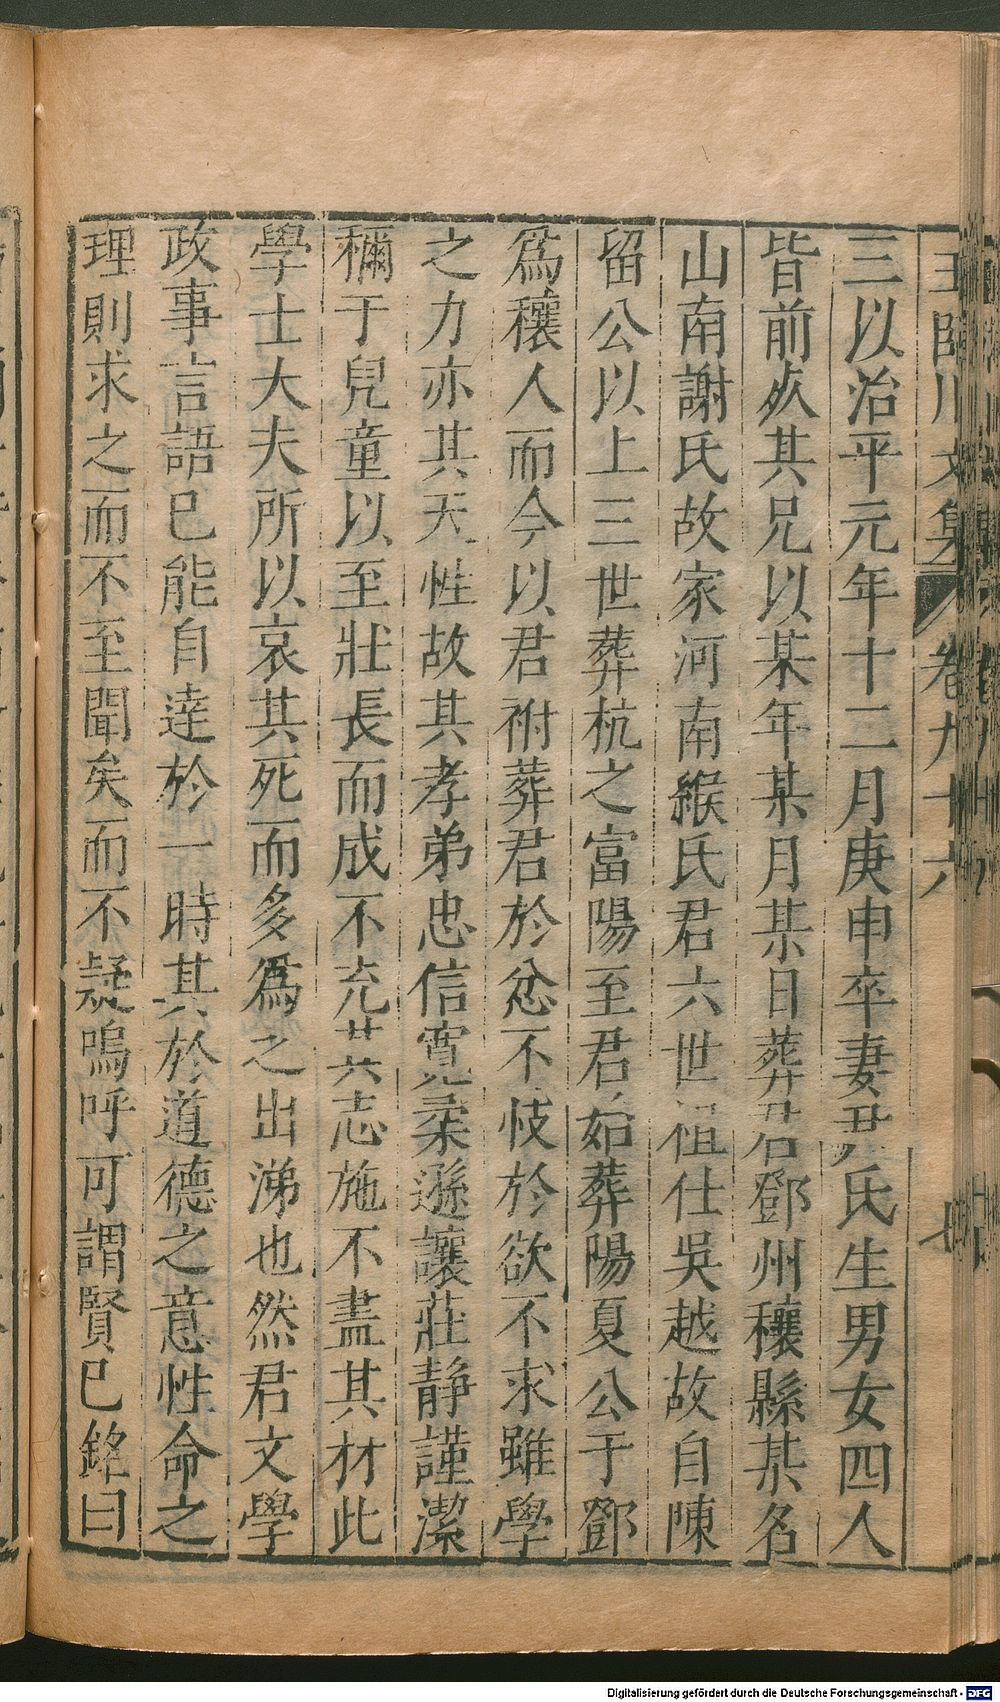 王臨川文集 卷九十六
三以治平元年十二月庚申卒妻尹氏生男女四人
皆前夭其兄以某年某月某日葬君鄧州穰縣某名
山南謝氏故家河南緱氏君六世祖仕吳越故自陳
留公以上三世葬杭之富陽至君始葬陽夏公于鄧
爲穰人而今以君祔葬君於忿不忮於欲不求雖學
之力亦其天性故其孝弟忠信寬柔遜讓莊靜謹潔
稱于兒童以至壯長而成不充其志施不盡其材此
學士大夫所以哀其死而多爲之出涕也然君文學
政事言語已能自達於一時其於道德之意性命之
理則求之而不至聞矣而不疑嗚呼可謂賢已銘曰
Digitalisierung gefördert durch die Deutsche Forschungsgemeinschaft - DFG